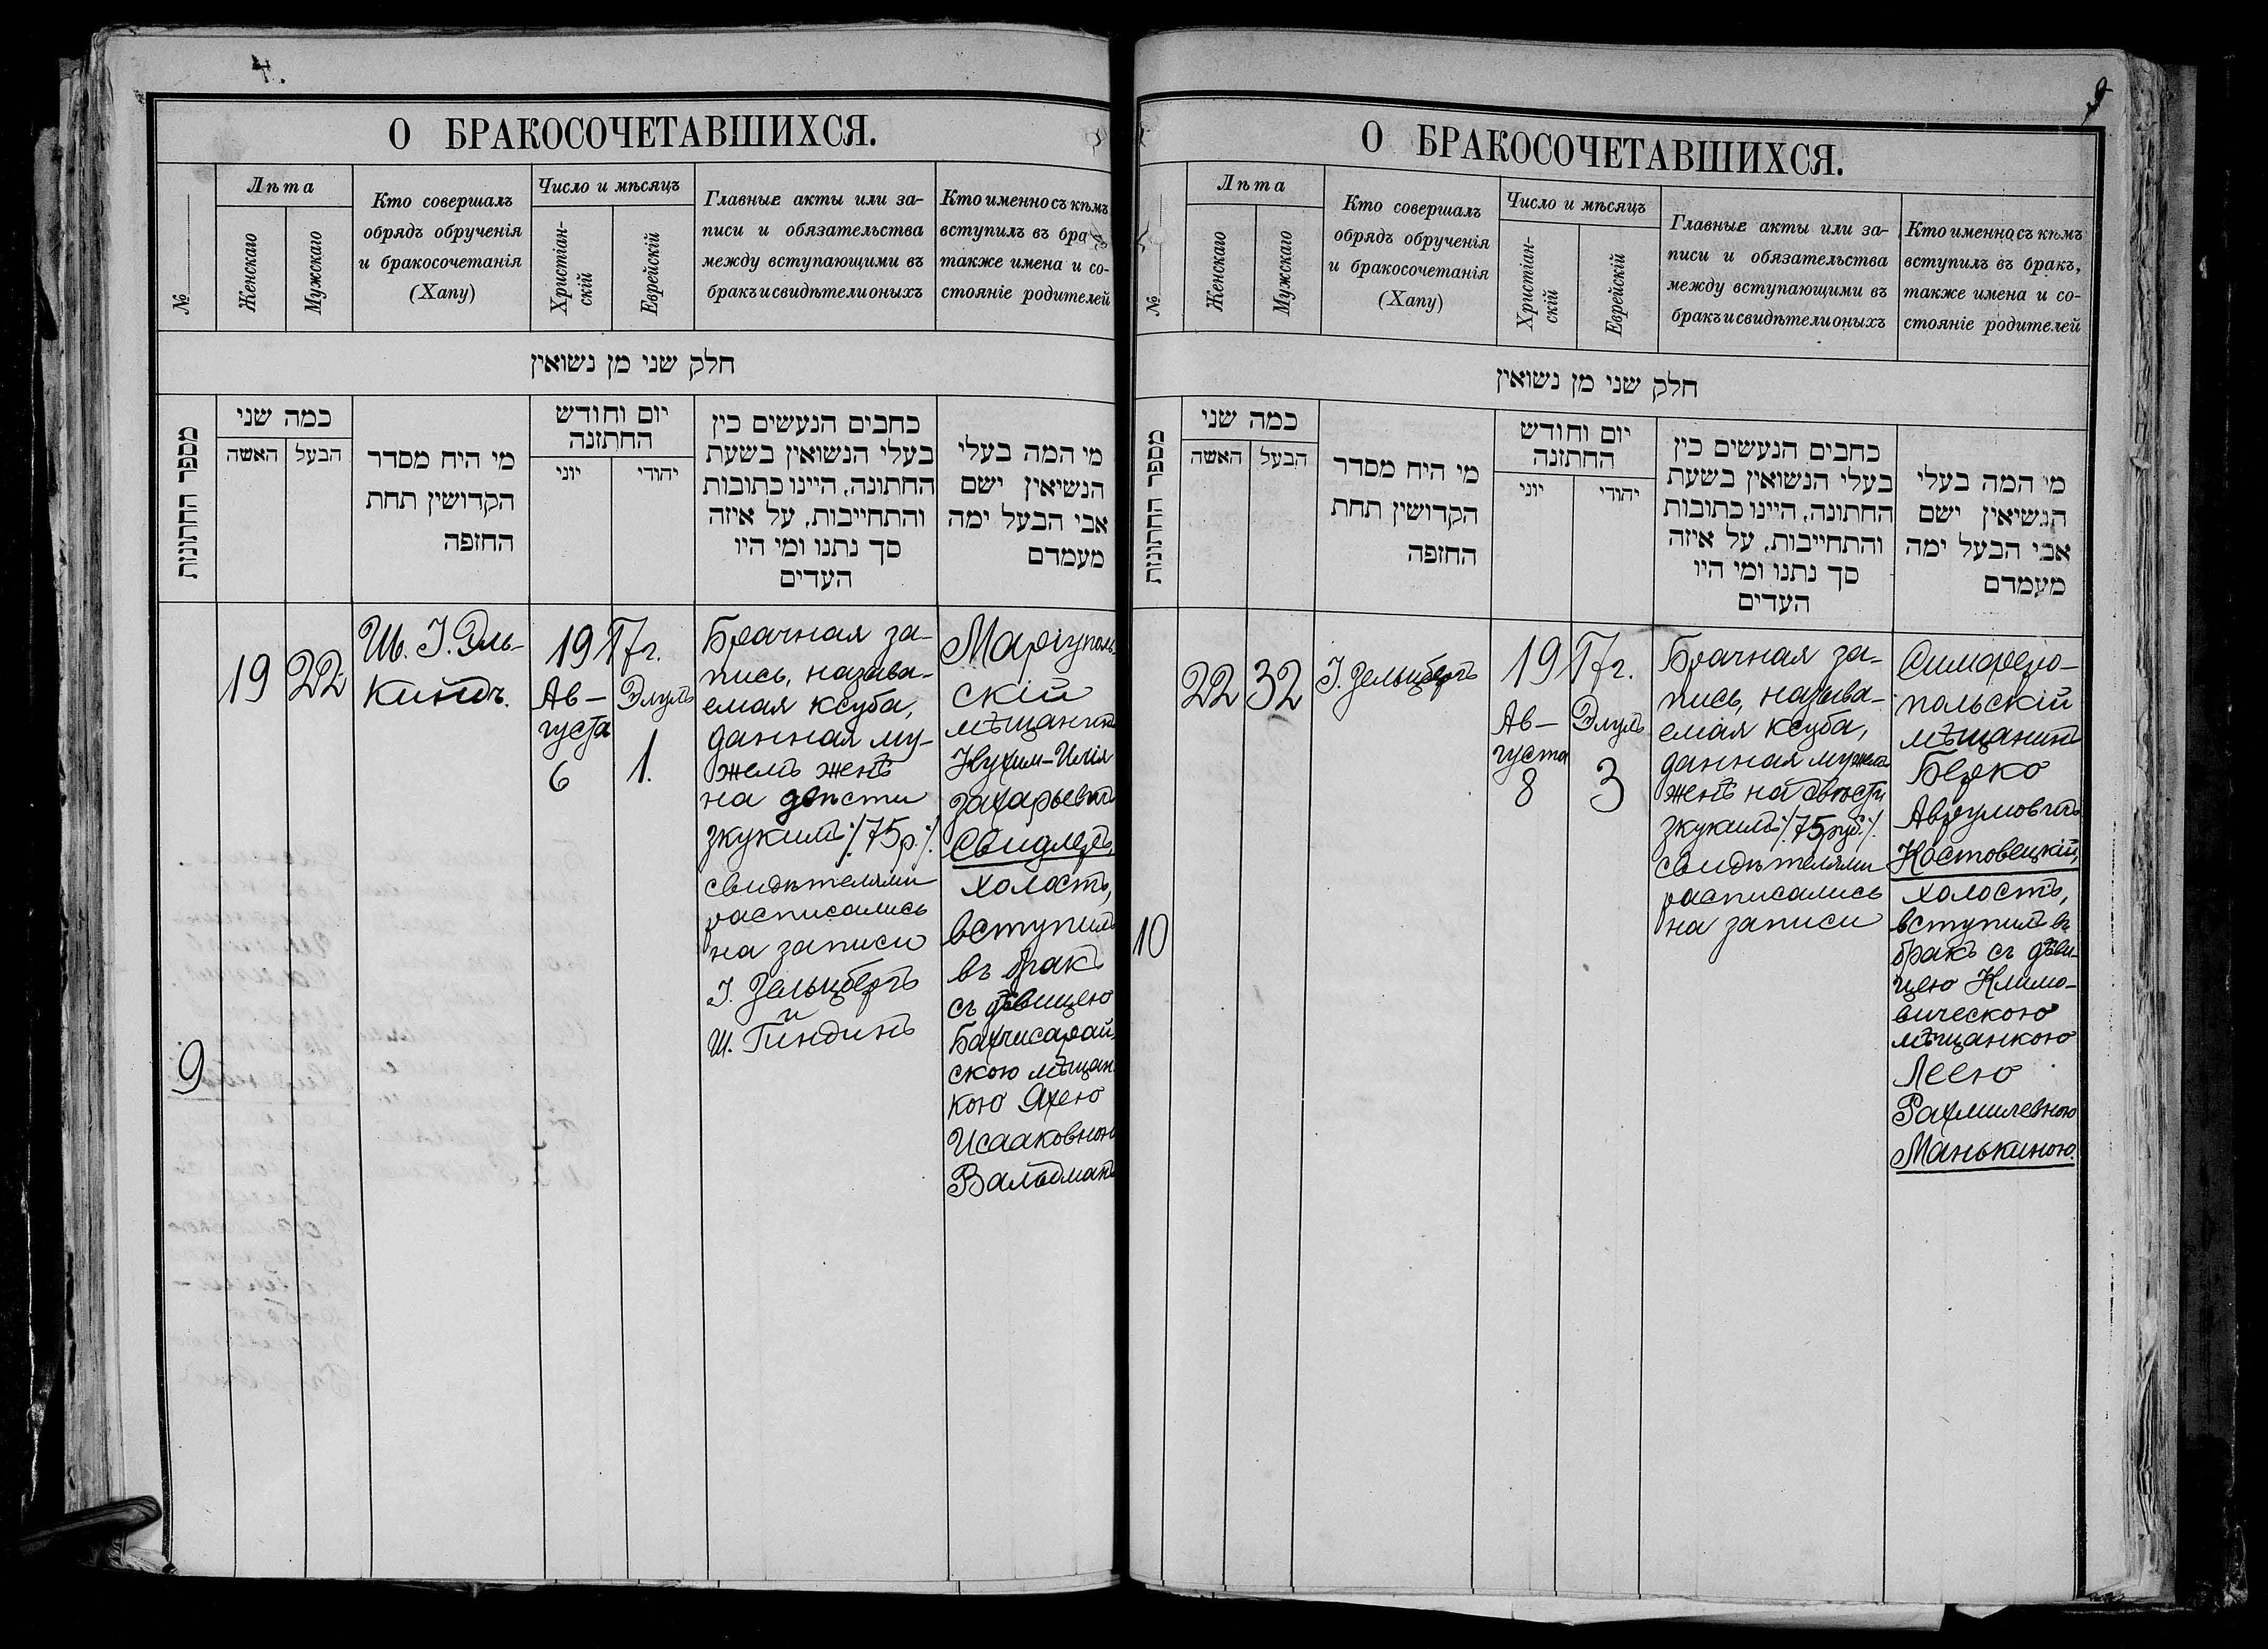 4.
О БРАКОСОЧЕТАВШИХСЯ.
№
Лѣта
Женскаго
Мужскаго
Кто совершалъ
обрядъ обрученія
и бракосочетанія
(Хапу)
Число и мѣсяцъ
Христіан-
скій
Еврейскій
Главные акты или за-
писи и обязательства
между вступающими въ
бракъ и свидѣтели оныхъ
Кто именно съ кѣмъ
вступилъ въ бра
также имена и со-
стояніе родителей
חלק שני מן נשואין
מספר החתונות
כמה שני
האשה
הבעל
מי היח מסדר
הקדושין תחת
החופה
יום וחודש
החתונה
יוני
יהודי
כחבים הנעשים כין
בעלי הנשואין בשעת
החתונה, היינו כתובות
והתחייבות, על איזה
סך נתנו ומי היו
העדים
מי המה בעלי
הנשיאין ישם
אבי הבעל ימה
מעמדם
9
19
22
Ш. І. Эль-
киндъ.
1917г.
Ав-
густа
6
Элулъ
1.
Брачная за-
пись, называ-
емая ксуба,
данная му-
жемъ женѣ
на двѣсти
зкукимъ /75р./.
свидѣтелями
расписались
на записи
І. Зельцбергъ
и
Ш. Гиндинъ
Маріуполь-
скій
мѣщанинъ
Нухим-Илія
Захарьевичъ
Свидлеръ,
холостъ,
вступилъ
въ бракъ
съ дѣвицею
Бахчисарай-
скою мѣщан-
кою Яхею
Исааковною
Вальдманъ
О БРАКОСОЧЕТАВШИХСЯ.
№
Лѣта
Женскаго
Мужскаго
Кто совершалъ
обрядъ обрученія
и бракосочетанія
(Хапу)
Число и мѣсяцъ
Христіан-
скій
Еврейскій
Главные акты или за-
писи и обязательства
между вступающими въ
бракъ и свидѣтели оныхъ
Кто именно съ кѣмъ
вступилъ въ бракъ,
также имена и со-
стояніе родителей
חלק שני מן נשואין
מספר החתונות
כמה שני
האשה
הבעל
מי היח מסדר
הקדושין תחת
החופה
יום וחודש
החתונה
יוני
יהודי
כחבים הנעשים כין
בעלי הנשואין בשעת
החתונה, היינו כתובות
והתחייבות, על איזה
סך נתנו ומי היו
העדים
מי המה בעלי
הנשיאין ישם
אבי הבעל ימה
מעמדם
10
22
32
І. Зельцбергъ
1917г.
Ав-
густа
8
Элулъ
3
Брачная за-
пись, называ-
емая ксуба,
данная мужемъ
женѣ на двѣсти
зкукимъ /75руб./.
свидѣтелями
расписались
на записи
Симферо-
польскій
мѣщанинъ
Берко
Аврумовичъ
Костовецкій,
холостъ,
вступилъ въ
бракъ съ дѣви-
цею Климо-
вическою
мѣщанкою
Леею
Рахмилевною
Манькиною.